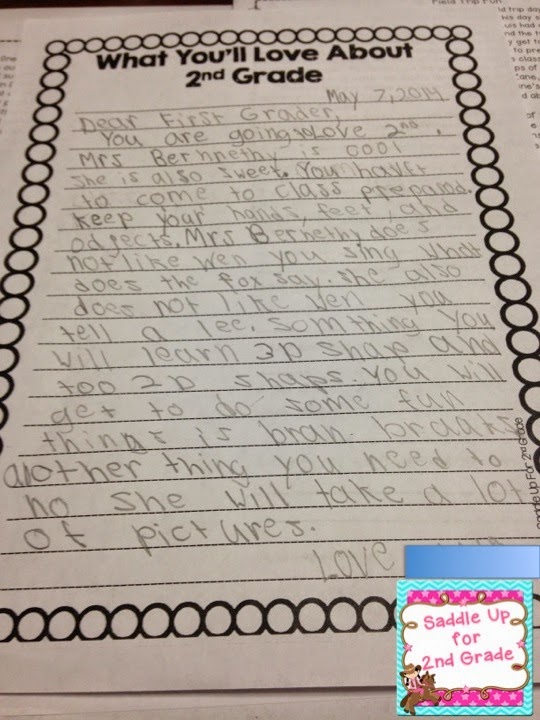 What You'll Love About
2nd Grade
May 7, 2014
Dear First Grader,
You are going to love 2nd.
Mrs Bernethy is cool
she is also sweet. You haveto
to come to class prepared.
keep your hands, feet, and
odgects. Mrs Bernethy does
not like wen you sing what
does the fox say. she also
does not like wen you
tell a lee. Somthing you
will learn 3D shap and
too 2D shaps. You will
get to do some fun
things is bran braks
alother thing you need to
no she will take a lot
of pictures.
Love
Saddle Up For 2nd Grade
Saddle Up
for
2nd Grade
Field Trip Fun